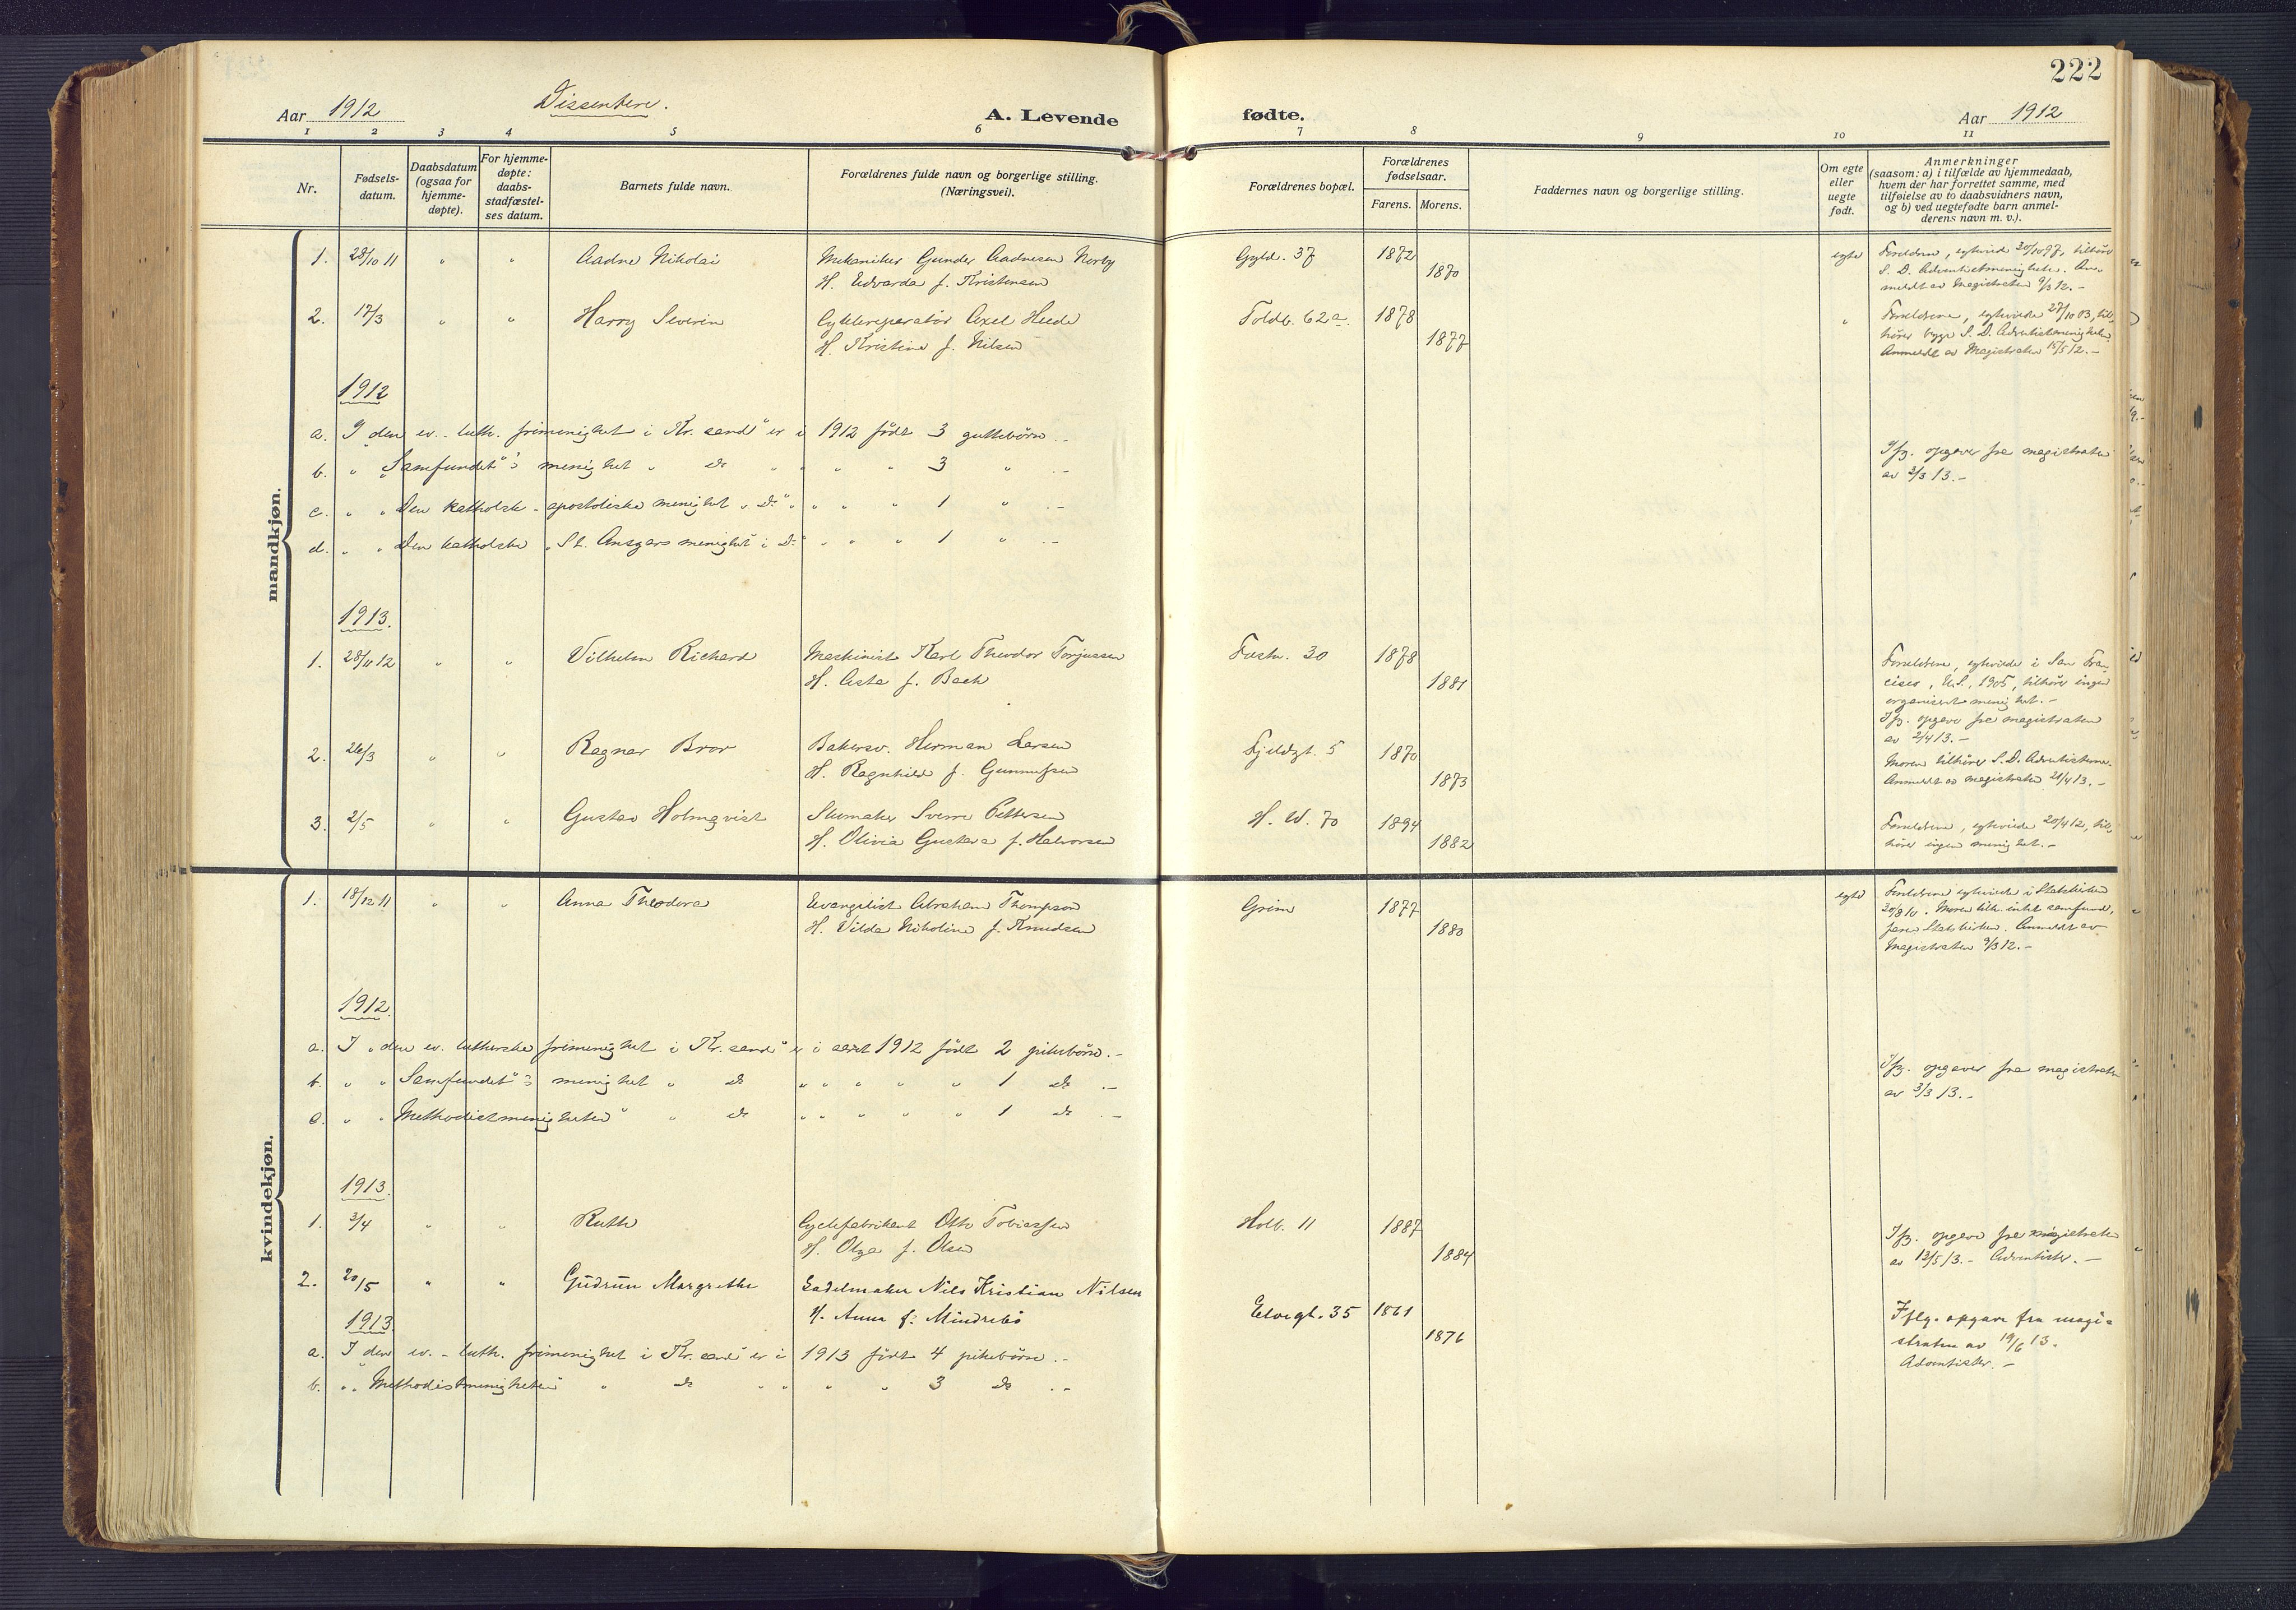 222
Aar 1912 Dissentere. A. Levende fødte. Aar 1912
1 2 3 4 5 6 7 8 9 10 11
Nr. Fødsels-datum. Daabsdatum (ogsaa for hjemme-døpte). For hjemme-døpte: daabs-stadfæstel-ses datum. Barnets fulde navn. Forældrenes fulde navn og borgerlige stilling. (Næringsvei). Forældrenes bopæl. Forældrenes fødselsaar. Farens. Morens. Faddernes navn og borgerlige stilling. Om egte eller uegte født. Anmerkninger (saasom: a) i tilfælde av hjemmedaab, hvem der har forrettet samme, med tilføielse av to daabsvidners navn, og b) ved uegtefødte barn anmel-derens navn m. v.).
mandkjøn.
1. 28/10 11 " " Aadne Nikolai Mekaniker Gunder Aadnesen Norby Gyld. 37 1872 egte Forældrene, egteviede 30/10 97, tilhører
H. Edvarda f. Kristensen 1870 S. D. Adventistmenigheten. An-
meldt av Magistraten 9/3 12. -
2. 17/3 " " Harry Severin Cyklereparatør Axel Heede Toldb. 62a. 1878 " Forældrene, egteviede 27/10 03, til-
H. Kristine f. Nilsen 1877 hører begge S. D. Adventistmenigheten
Anmeldt av Magistraten 15/5 12. -
1912
a. I "den ev. - luth. frimenighet i Kr.sand" er i 1912 født 3 guttebørn. -
b. " "Samfundet"s menighet " do " " " " 3 " . -
Ifg. opgaver fra magistraten
av 3/3 13. -
c. " " Den katholsk - apostoliske menighet " Do " " " " 1 " . -
d. " " Den katholske "St. Ansgars menighet" i Do " " " 1 " . -
1913.
1. 28/11 12 " " Vilhelm Richard Maskinist Karl Theodor Torjussen Festn. 30 1878 Forældrene, egteviede i San Fran-
H. Asta f. Bach 1881 cisco, U.S., 1905, tilhører ingen
organisert menighet. -
Ifg. opgave fra magistraten
av 2/4 13. -
2. 26/3 " " Ragnar Bror Bakersv. Herman Larsen Fjeldgt. 5 1870 Moren tilhører S. D. Adventisterne.
H. Ragnhild f. Gunnufsen 1873 Anmeldt av magistraten 21/4 13. -
3. 2/5 " " Gustav Holmqvist Skomaker Sverre Pettersen H. W. 70 1894 Forældrene, egteviede 20/4 12, til-
H. Olivia Gustava f. Halvorsen 1882 hører ingen menighet. -
kvindekjøn.
1. 18/12 11 " " Anna Theodora Evangelist Abraham Thompson Grim 1877 egte Forældrene egteviede i Statskirken
H. Vilda Nikoline f. Knudsen 1880 30/8 10. Moren tilh. intet samfund,
faren Statskirken. Anmeldt av
Magistraten 9/3 12. -
1912.
a. I "den ev. lutherske frimenighet i Kr.sand" er i aaret 1912 født 2 pikebørn. -
b. " " Samfundet"s menighet " do " " " " " 1 do . -
Ifg. opgaver fra magistraten
av 3/3 13. -
c. " " Methodistmenigheten" " do " " " " " 1 do . -
1913.
1. 3/4 " " Ruth Cyclefabrikant Otto Tobiassen Holb. 11 1887 Ifg. opgave fra magistraten
H. Olga f. Olsen 1884 av 13/5 13. - Adventister. -
2. 20/5 " " Gudrun Margrethe Sadelmaker Nils Kristian Nilsen Elvegt. 35 1861 Iflg. opgave fra magi-
H. Anna f. Mindrebö 1876 straten av 19/6 13.
Adventister. -
1913
a. I "den ev. - luth. frimenighet i Kr.sand" er i 1913 født 4 pikebørn. -
b. " " Methodistmenigheten" " do " " " " 3 do . -